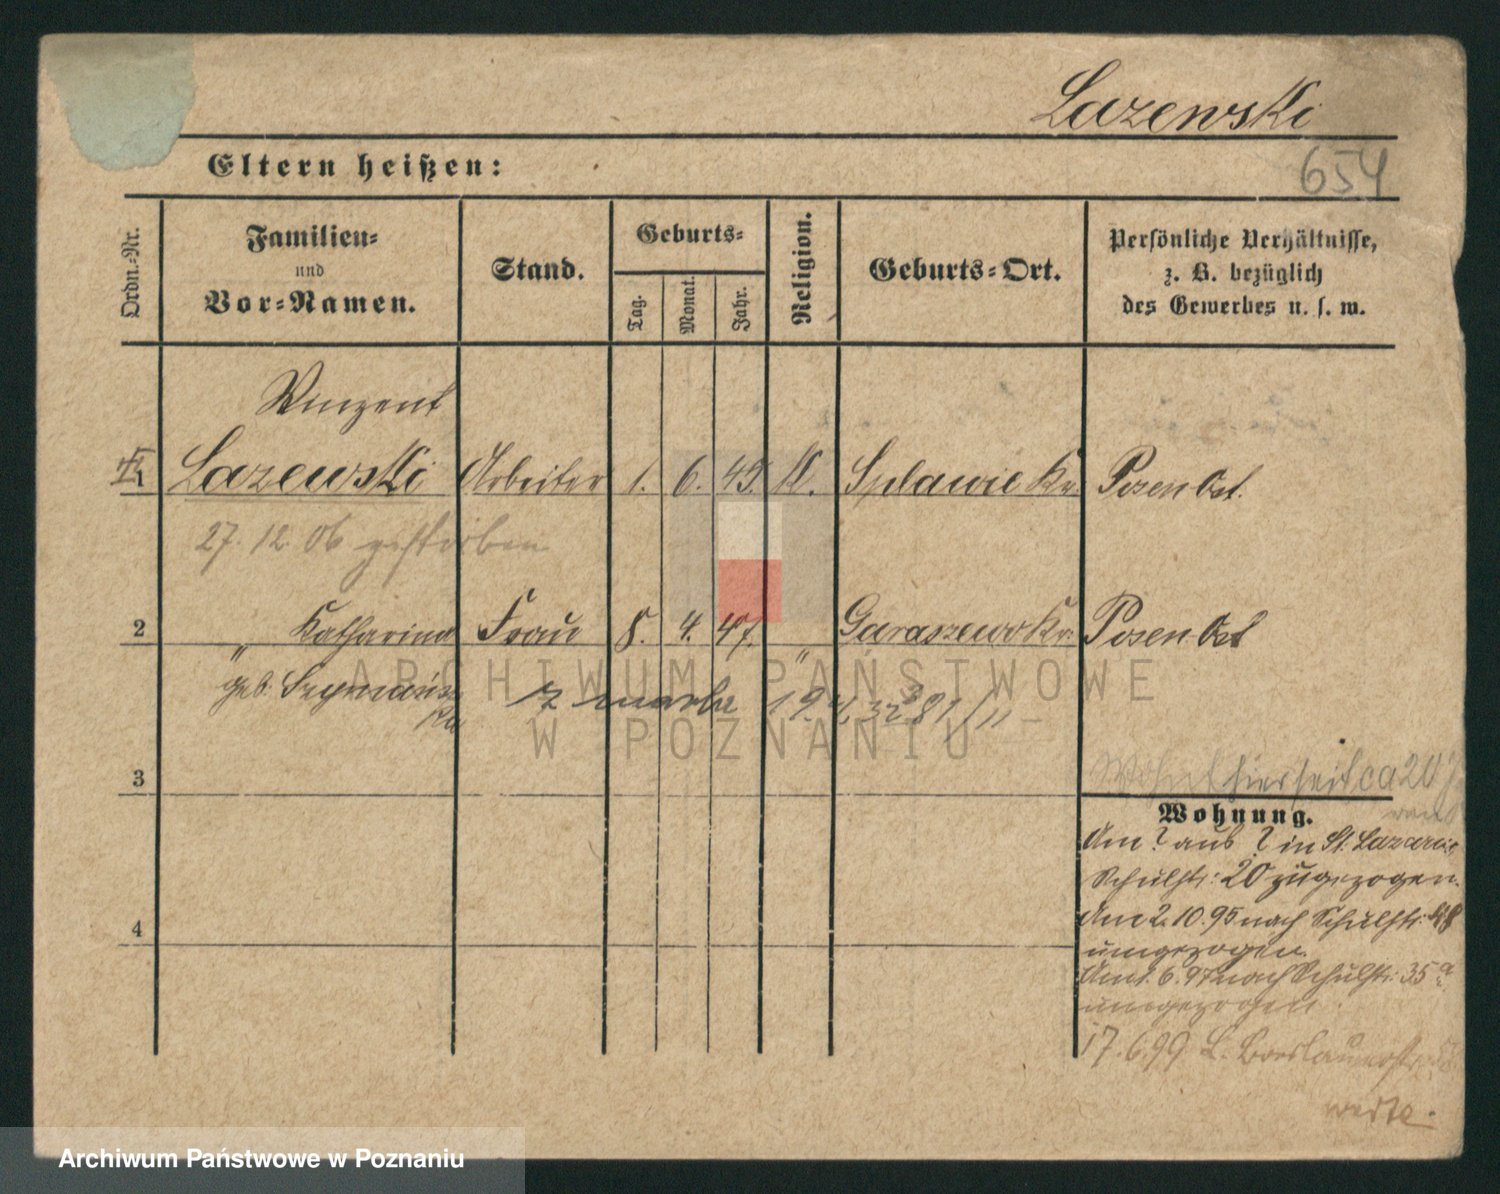 Lazewski
Eltern heißen:
654
Ordn.-Nr.
Familien-
und
Vor-Namen.
Stand.
Geburts-
Tag.
Monat.
Jahr.
Religion.
Geburts-Ort.
Persönliche Verhältnisse,
z. B. bezüglich
des Gewerbes u. s. w.
Winzent
1 Lazewski Arbeiter 1. 6. 45. K. Splawie Kr. Posen Ost.
27. 12. 06 gestorben
2 " Katharina Frau 8. 4. 47. " Garaszewo Kr. Posen Ost
geb. Szymańs
ka
ARCHIWUM PAŃSTWOWE
W POZNANIU
3
Wohnt hier seit ca 20 J
Wohnung.
Am ? aus ? in St. Lazarus,
Schulstr: 20 zugezogen.
Am 2. 10. 95 nach Schulstr: 48
umgezogen.
4
Am 1. 6. 97 nach Schulstr: 35 a
umgezogen.
17. 6. 99 L. Breslauerstr.
Archiwum Państwowe w Poznaniu